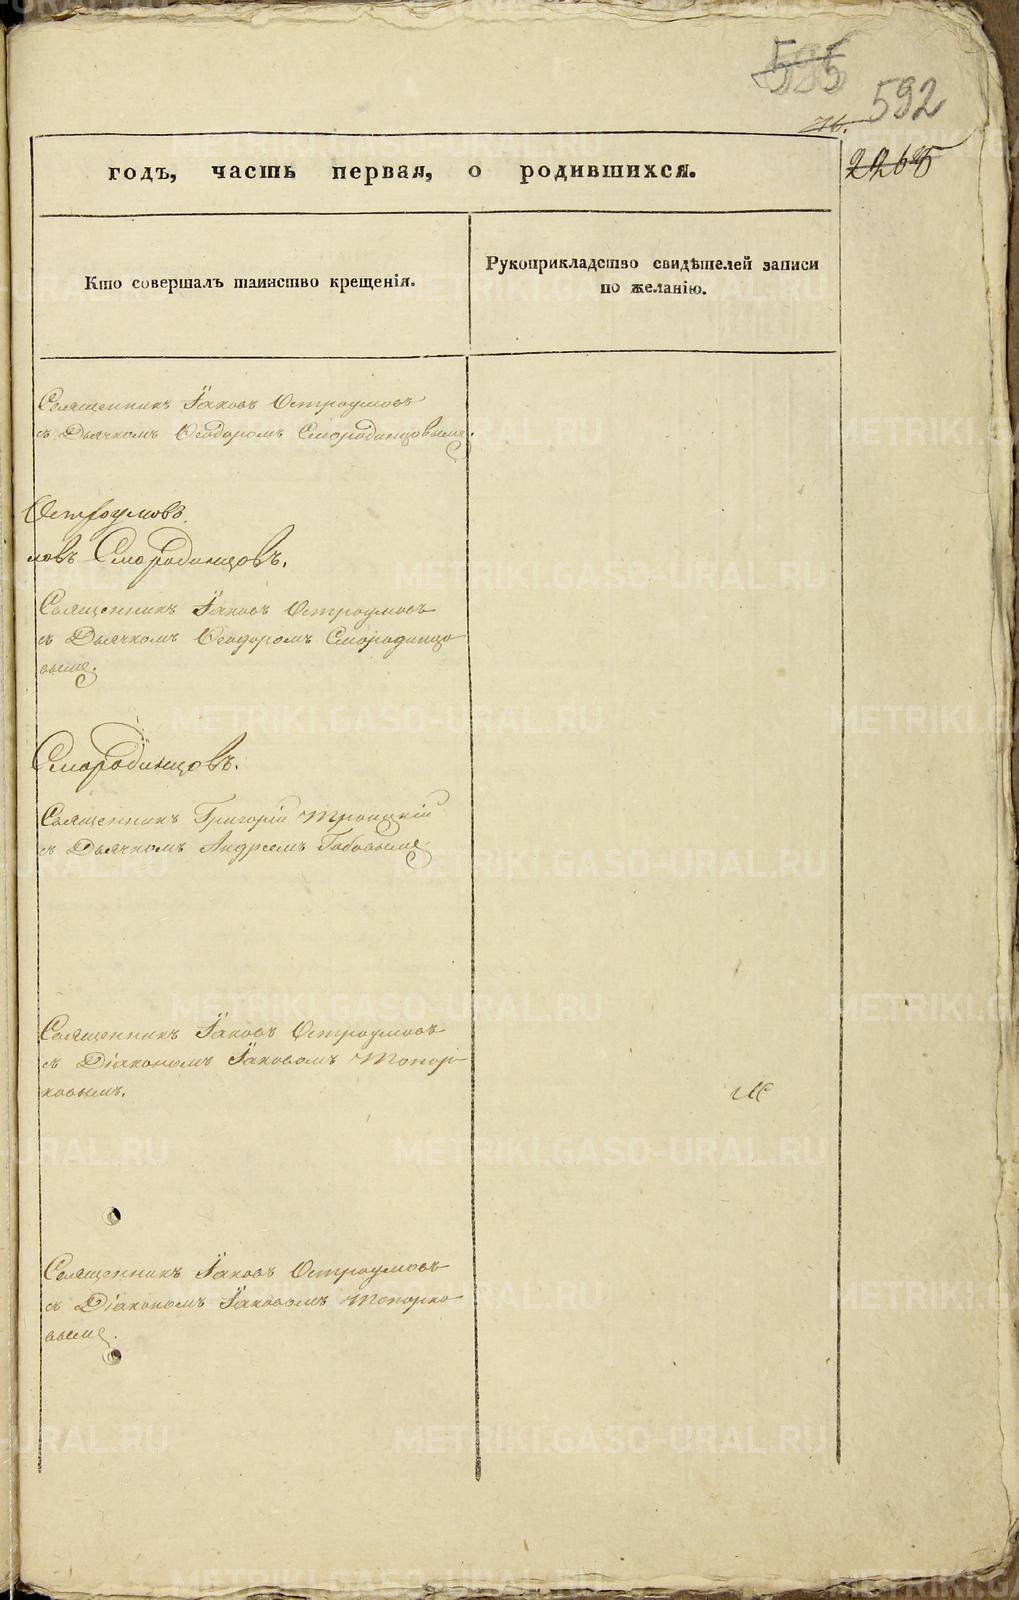 595
592
76.
2265
годъ, часть первая, о родившихся.
Кто совершалъ таинство крещенія.
Рукоприкладство свидѣтелей записи
по желанію.
Священникъ Іаковъ Остроумовъ
съ Дьячкомъ Ѳеодоромъ Смородинцовымъ.
Остроумовъ.
ловъ Смородинцовъ.
Священникъ Іаковъ Остроумовъ
съ Дьячкомъ Ѳеодоромъ Смородинцо
вымъ.
Смородинцовъ.
Священникъ Григорій Троицкій
съ Дьячкомъ Андреемъ Бабовымъ.
Священникъ Іаковъ Остроумовъ
съ Діакономъ Іаковомъ Топор-
ковымъ.
Священникъ Іаковъ Остроумовъ
съ Діакономъ Іаковомъ Топорко
вымъ.
METRIKI.GASO-URAL.RU